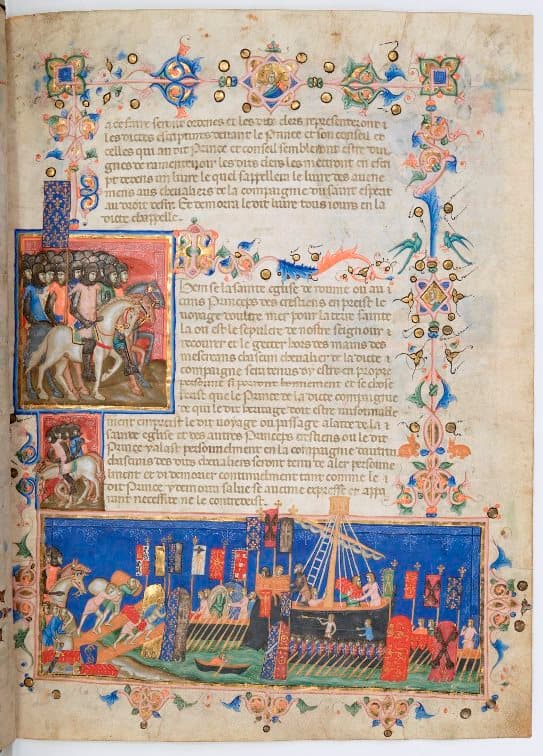 a ce faire seront ordenes et les dits clers representeront
les dictes escriptures devant le Prince et son conseil et
celles qui au dit Prince et conseil sembleront estre dig
gnes de ramentevoir les dits clers les mettront en escri
pt dedens un livre le quel sappellera le livre des avene
mens aus chevaliers de la compaignie du saint esperit
au droit desir. Et demorra le dit livre tous iours en la
dicte chappelle
Item se la sainte eglise de romme ou au
cuns Princeps des crestiens en preist le
voyage doultre mer pour la terre sainte
la ou est le sepulcre de nostre seignour
recourer et le getter hors des mains des
mescreans chascun chevalier de la dicte
compaignie sera tenus dy estre en propre
persone si porront bonnement et se chose
estait que le Prince de la dicte compaignie
de qui le dit voyage doit estre raisonnable
ment enpreist le dit voyage ou passage a laide de la
sainte eglise et des autres Princeps crestiens ou le dit
Prince y alast personelment en la compaignie toutuin
chascuns des dits chevaliers seront tenu de aler personne
lment et di demourer continuelment tant comme le
dit Prince y demourra salve se aucune expresse et appa
rant necessite ne le contredeist